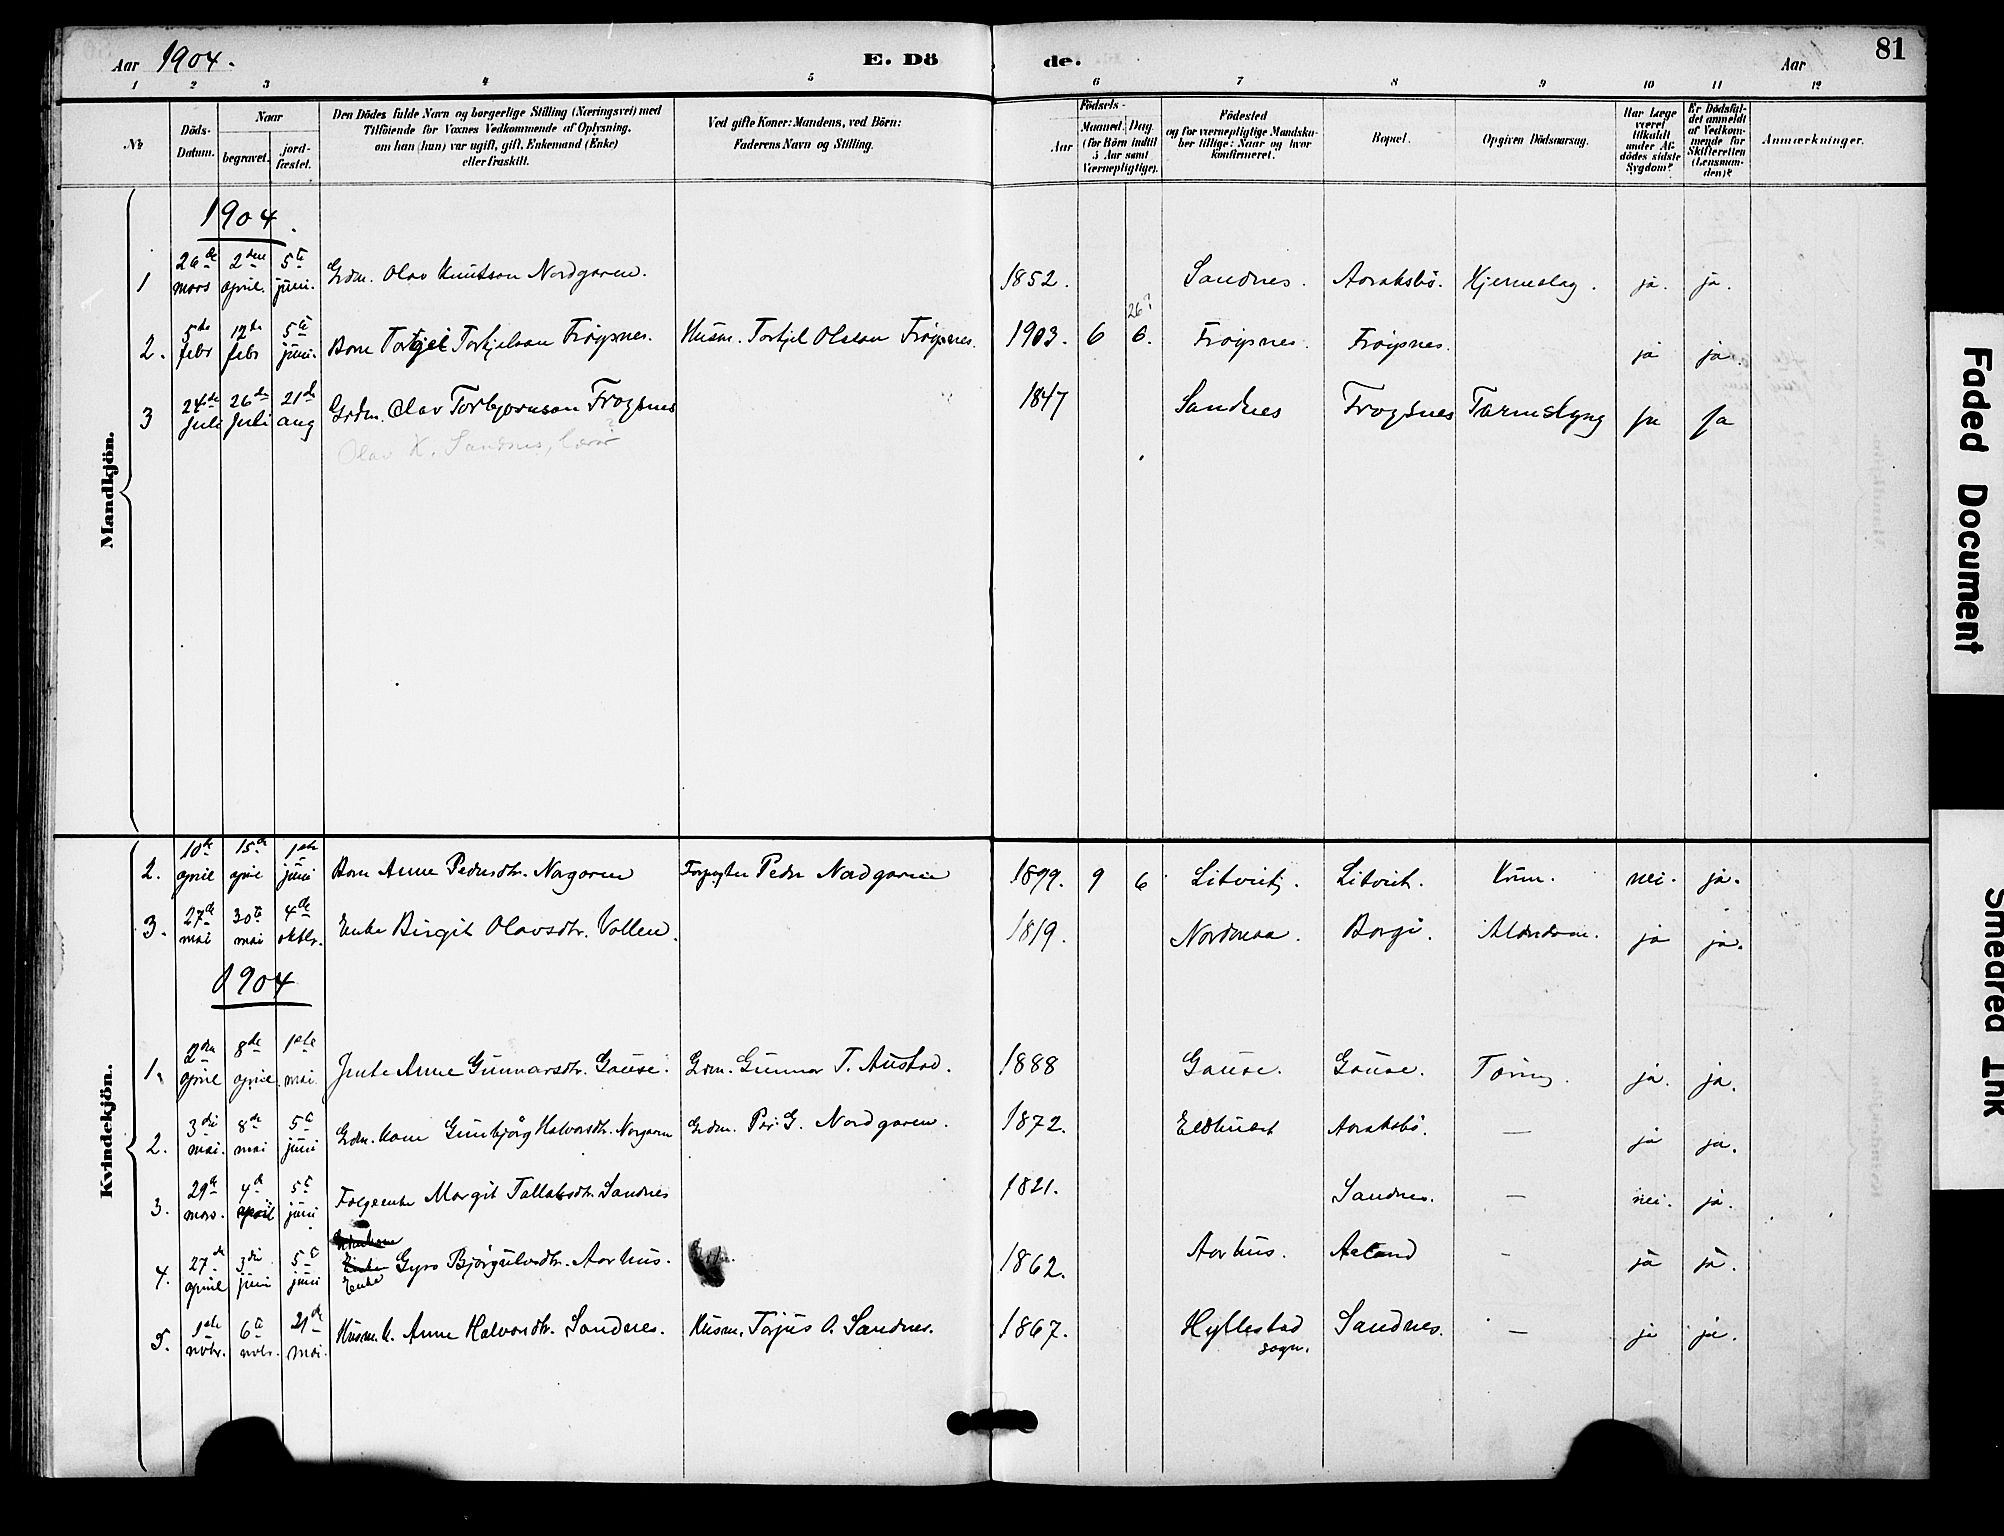 Aar 1904. E. Dö de. Aar 81
1 2 3 4 5 6 7 8 9 10 11 12
№ Döds-Datum. Naar begravet. jord-fæstet. Den Dödes fulde Navn og borgerlige Stilling (Næringsvei) med Tilföiende for Voxnes Vedkommende af Oplysning, om han (hun) var ugift, gift, Enkemand (Enke) eller fraskilt. Ved gifte Koner: Mandens, ved Börn: Faderens Navn og Stilling. Födsels- Aar Maaned. Dag (for Börn indtil 5 Aar samt Værnepligtige). Födested og for værnepligtige Mandska-ber tillige: Naar og hvor konfirmeret. Bopæl. Opgiven Dödsaarsag. Har Læge været tilkaldt under Af-dödes sidste Sygdom? Er Dödsfal-det anmeldt af Vedkom-mende for Skifteretten (Lensman-den)? Anmærkninger.
Mandkjön.
1904.
1 26de mars 2den april. 5te juni. Grdm. Olav Knutson Nordgaren. 1852. Sandnes. Aaraksbö. Hjerneslag. ja. ja.
2. 5te febr 12te febr 5te juni. Barn Torkjel Torkjelson Frøysnes. Husm. Torkjel Olsson Frøysnes. 1903. 6 6. 26? Frøysnes. Frøysnes. ja ja
3 24de Juli 26de Juli 21de aug Grdm. Olav Torbjornson Froysnes 1847 Sandnes Froysnes Tarmslyng ja ja
Olav K. Sandnes, lærar?
Kvindekjön.
2. 10de april 15de april 1ste juni Barn Anne Pedersdtr. Nagaren Peder Nordgaren 1899. 9 6 Litveit. Litveit. nei. ja.
3. 27de mai 30te mai 4de oktbr. Enke Birgit Olavsdtr. Vollen. 1819. Nordmaa. Borgi. Alderdom. ja ja.
1904
1. 2den april 8de april. 1ste mai. Jente Anne Gunnarsdtr. Gause. Grdm. Gunnar T. Austad. 1888 Gause. Gause. Tæring. ja. ja.
2. 3die mai. 8de mai 5te juni Grdm. kone Gunbjörg Halvorsdtr. Norgaren Grdm. Per G. Nordgaren. 1872. Eldhuset Aaraksbö. — ja ja.
3. 29de mars. 4de april 5te juni Folgeenke Margit Tallaksdtr. Sandnes 1821. Sandnes. — nei. ja.
4. 27de april 3die juni 5te juni Enke Gyro Björgulvsdtr. Aarhus. 1862. Aarhus. Aaland — ja ja.
5. 1ste novbr. 6te novbr. 21de mai. Husm. k. Anne Halvorsdtr. Sandnes. Husm. Tarjus O. Sandnes. 1867. Hyllestad sogn. Sandnes. — ja ja.
Faded Document
Smeared Ink